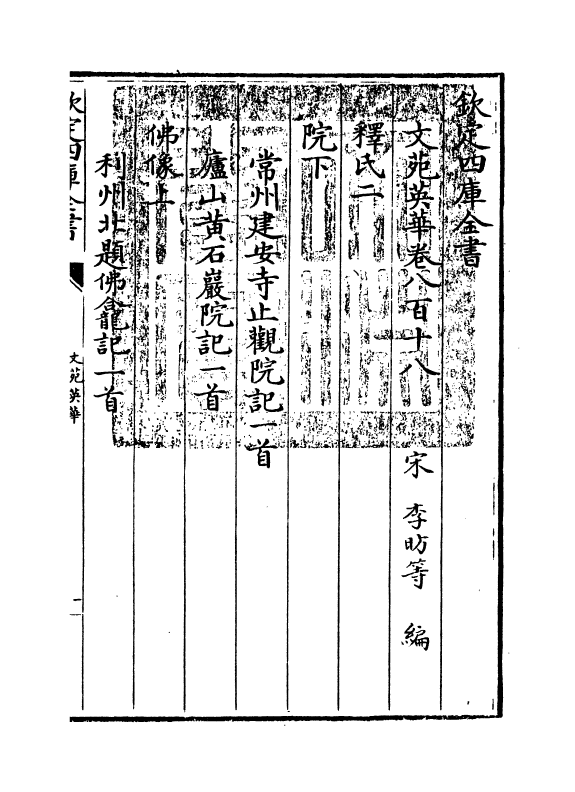 欽定四庫全書
文苑英華卷八百十八
宋 李昉等 編
釋氏二
院下
常州建安寺止觀院記一首
廬山黄石巖院記一首
佛像上
利州北題佛龕記一首
欽定四庫全書
文苑英華
一